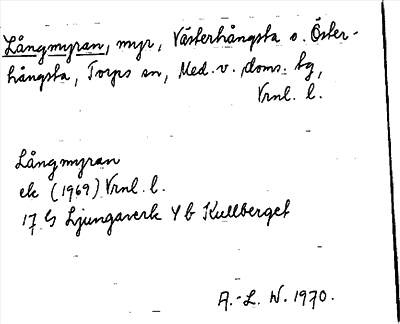 Långmyran, myr, Västerhångsta o. Öster-
hångsta, Torps sn, Med. v. doms. tg,
Vrnl. l.
Långmyran
ek (1969) Vrnl. l.
17 G Ljungaverk 4 b Kullberget
A.-L. W. 1970.